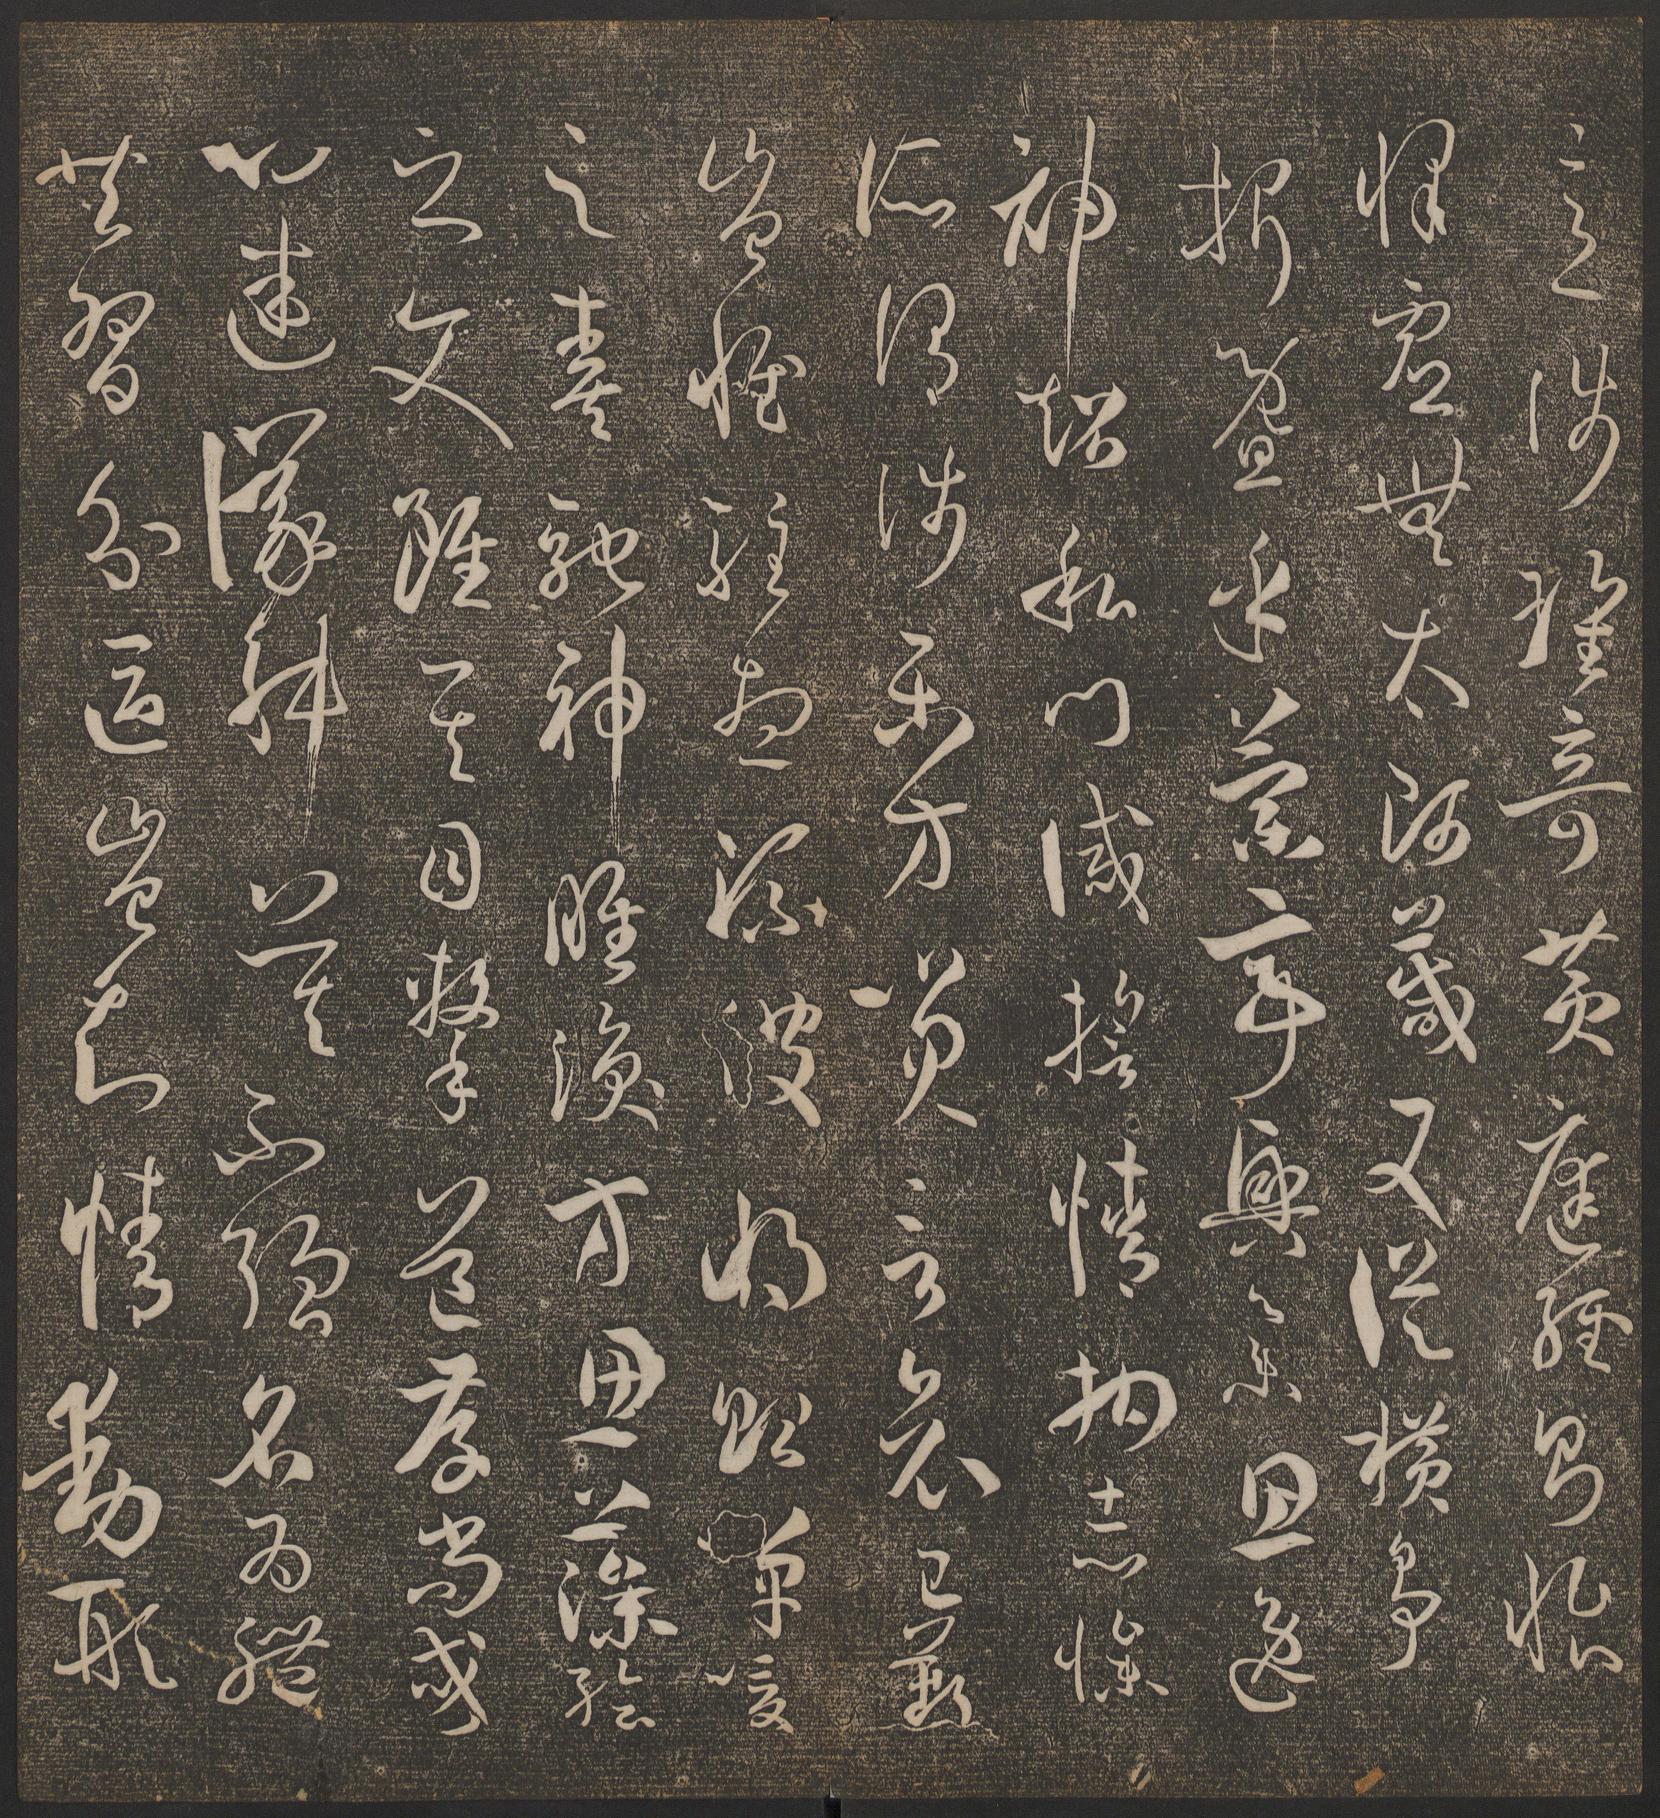 意涉瑰奇黃庭經則怡
懌虛無太師箴又從橫爭
折暨乎蘭亭興集思逸
神超私門誡誓情拘志慘
所謂涉樂方笑言哀已歎
豈惟駐想流波將貽嘽噯
之奏馳神睢渙方思藻繪
之文雖其目擊道存尚或
心迷議舛莫不強名為體
共習分區豈知情動形